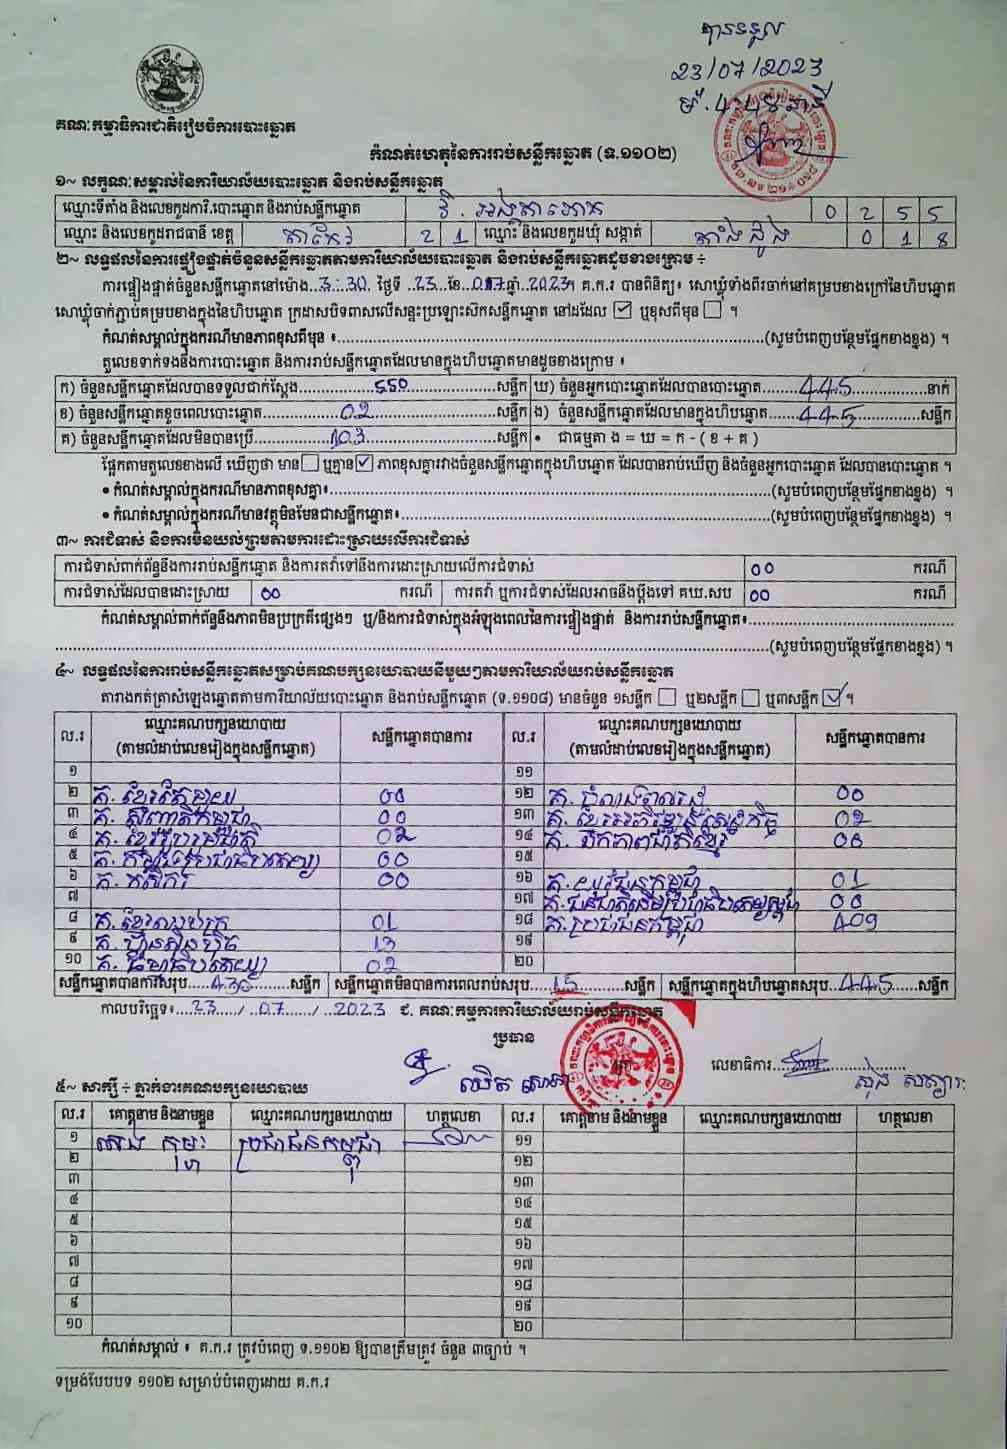 បានទទួល
23/07/2023
ម៉.4.48នាទី
គណៈកម្មាធិការជាតិរៀបចំការបោះឆ្នោត
កំណត់ហេតុនៃការរាប់សន្លឹកឆ្នោត (ទ.១១០២)
១~ លក្ខណៈសម្គាល់នៃការិយាល័យបោះឆ្នោត និងរាប់សន្លឹកឆ្នោត
ឈ្មោះទីតាំង និងលេខកូដការិ.បោះឆ្នោត និងរាប់សន្លឹកឆ្នោត វិ. អង្គតាសោក 0 2 5 5
ឈ្មោះ និងលេខកូដរាជធានី ខេត្ត តាកែវ 2 1 ឈ្មោះ និងលេខកូដឃុំ សង្កាត់ 0 1 8
២~ លទ្ធផលនៃការផ្ទៀងផ្ទាត់ចំនួនសន្លឹកឆ្នោតតាមការិយាល័យបោះឆ្នោត និងរាប់សន្លឹកឆ្នោតដូចខាងក្រោម ÷
ការផ្ទៀងផ្ទាត់ចំនួនសន្លឹកឆ្នោតនៅម៉ោង..3:30. ថ្ងៃទី ..23..ខែ..07ឆ្នាំ..2023។ គ.ក.រ បានពិនិត្យ៖ សោឃ្លុំទាំងពីរចាក់នៅគម្របខាងក្រៅនៃហិបឆ្នោត
សោឃ្លុំចាក់ភ្ជាប់គម្របខាងក្នុងនៃហិបឆ្នោត ក្រដាសបិទពាសលើសន្ទះប្រឡោះស៊កសន្លឹកឆ្នោត នៅដដែល ☑ ឬខុសពីមុន ☐ ។
កំណត់សម្គាល់ក្នុងករណីមានភាពខុសពីមុន ៖......(សូមបំពេញបន្ថែមផ្នែកខាងខ្នង) ។
តួលេខទាក់ទងនឹងការបោះឆ្នោត និងការរាប់សន្លឹកឆ្នោតដែលមានក្នុងហិបឆ្នោតមានដូចខាងក្រោម ៖
ក) ចំនួនសន្លឹកឆ្នោតដែលបានទទួលជាក់ស្តែង......550......សន្លឹក ឃ) ចំនួនអ្នកបោះឆ្នោតដែលបានបោះឆ្នោត......445......នាក់
ខ) ចំនួនសន្លឹកឆ្នោតខូចពេលបោះឆ្នោត......02......សន្លឹក ង) ចំនួនសន្លឹកឆ្នោតដែលមានក្នុងហិបឆ្នោត......445......សន្លឹក
គ) ចំនួនសន្លឹកឆ្នោតដែលមិនបានប្រើ......103......សន្លឹក • ជាធម្មតា ង = ឃ = ក - ( ខ + គ )
ផ្អែកតាមតួលេខខាងលើ ឃើញថា មាន☐ ឬគ្មាន☑ ភាពខុសគ្នារវាងចំនួនសន្លឹកឆ្នោតក្នុងហិបឆ្នោត ដែលបានរាប់ឃើញ និងចំនួនអ្នកបោះឆ្នោត ដែលបានបោះឆ្នោត ។
• កំណត់សម្គាល់ក្នុងករណីមានភាពខុសគ្នា៖......(សូមបំពេញបន្ថែមផ្នែកខាងខ្នង) ។
• កំណត់សម្គាល់ក្នុងករណីមានវត្ថុមិនមែនជាសន្លឹកឆ្នោត៖......(សូមបំពេញបន្ថែមផ្នែកខាងខ្នង) ។
៣~ ការជំទាស់ និងការមិនយល់ព្រមតាមការដោះស្រាយលើការជំទាស់
ការជំទាស់ពាក់ព័ន្ធនឹងការរាប់សន្លឹកឆ្នោត និងការតវ៉ាទៅនឹងការដោះស្រាយលើការជំទាស់ 00 ករណី
ការជំទាស់ដែលបានដោះស្រាយ 00 ករណី ការតវ៉ា ឬការជំទាស់ដែលអាចនឹងប្តឹងទៅ គឃ.សប 00 ករណី
កំណត់សម្គាល់ពាក់ព័ន្ធនឹងភាពមិនប្រក្រតីផ្សេងៗ ឬ/និងការជំទាស់ក្នុងអំឡុងពេលនៃការផ្ទៀងផ្ទាត់ និងការរាប់សន្លឹកឆ្នោត៖......
......(សូមបំពេញបន្ថែមផ្នែកខាងខ្នង) ។
៤~ លទ្ធផលនៃការរាប់សន្លឹកឆ្នោតសម្រាប់គណបក្សនយោបាយនីមួយៗតាមការិយាល័យរាប់សន្លឹកឆ្នោត
តារាងកត់ត្រាសំឡេងឆ្នោតតាមការិយាល័យបោះឆ្នោត និងរាប់សន្លឹកឆ្នោត (ទ.១១០៨) មានចំនួន ១សន្លឹក ☐ ឬ២សន្លឹក ☐ ឬ៣សន្លឹក ☑ ។
ល.រ ឈ្មោះគណបក្សនយោបាយ (តាមលំដាប់លេខរៀងក្នុងសន្លឹកឆ្នោត) សន្លឹកឆ្នោតបានការ ល.រ ឈ្មោះគណបក្សនយោបាយ (តាមលំដាប់លេខរៀងក្នុងសន្លឹកឆ្នោត) សន្លឹកឆ្នោតបានការ
១ ១១
២ គ. ខ្មែរតែមួយ 00 ១២ គ. 00
៣ គ. សញ្ជាតិកម្ពុជា 00 ១៣ គ. ខ្មែរអភិវឌ្ឍន៍សេដ្ឋកិច្ច 02
៤ គ. ខ្មែររួបរួមជាតិ 02 ១៤ គ. ឯកភាពជាតិខ្មែរ 00
៥ គ. 00 ១៥
៦ គ. កសិករ 00 ១៦ គ. យុវជនកម្ពុជា 01
៧ ១៧ គ. ជនជាតិដើមប្រជាធិបតេយ្យកម្ពុជា 00
៨ គ. ខ្មែរឈប់ក្រ 01 ១៨ គ. ប្រជាជនកម្ពុជា 409
៩ គ. ហ៊្វុនស៊ិនប៉ិច 13 ១៩
១០ គ. ធម្មាធិបតេយ្យ 02 ២០
សន្លឹកឆ្នោតបានការសរុប.....430.....សន្លឹក សន្លឹកឆ្នោតមិនបានការពេលរាប់សរុប.....15.....សន្លឹក សន្លឹកឆ្នោតក្នុងហិបឆ្នោតសរុប...445...សន្លឹក
កាលបរិច្ឆេទ៖....23..../..07..../..2023 ជ. គណៈកម្មការការិយាល័យរាប់សន្លឹកឆ្នោត
ប្រធាន
លេខាធិការ
៥~ សាក្សី ÷ ភ្នាក់ងារគណបក្សនយោបាយ
ល.រ គោត្តនាម និងនាមខ្លួន ឈ្មោះគណបក្សនយោបាយ ហត្ថលេខា ល.រ គោត្តនាម និងនាមខ្លួន ឈ្មោះគណបក្សនយោបាយ ហត្ថលេខា
១ ប្រជាជនកម្ពុជា ១១
២ ១២
៣ ១៣
៤ ១៤
៥ ១៥
៦ ១៦
៧ ១៧
៨ ១៨
៩ ១៩
១០ ២០
កំណត់សម្គាល់ ៖ គ.ក.រ ត្រូវបំពេញ ទ.១១០២ ឱ្យបានត្រឹមត្រូវ ចំនួន ៣ច្បាប់ ។
ទម្រង់បែបបទ ១១០២ សម្រាប់បំពេញដោយ គ.ក.រ